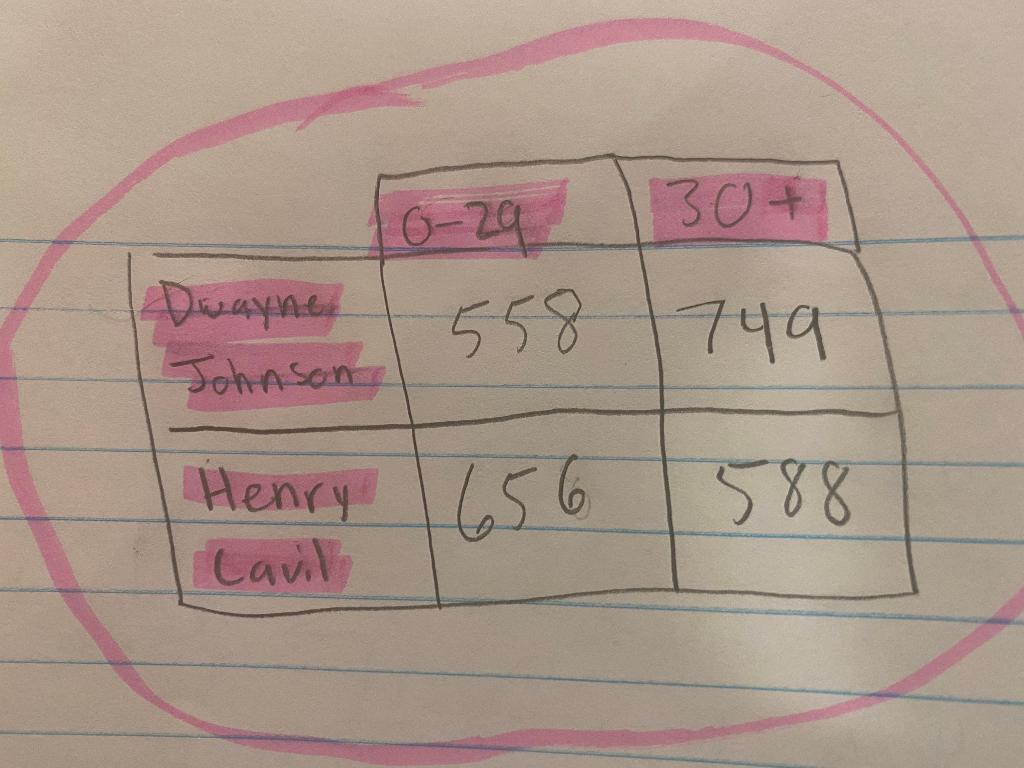 0-29 30+
Dwayne
Johnson
558 749
Henry
Cavil
656 588